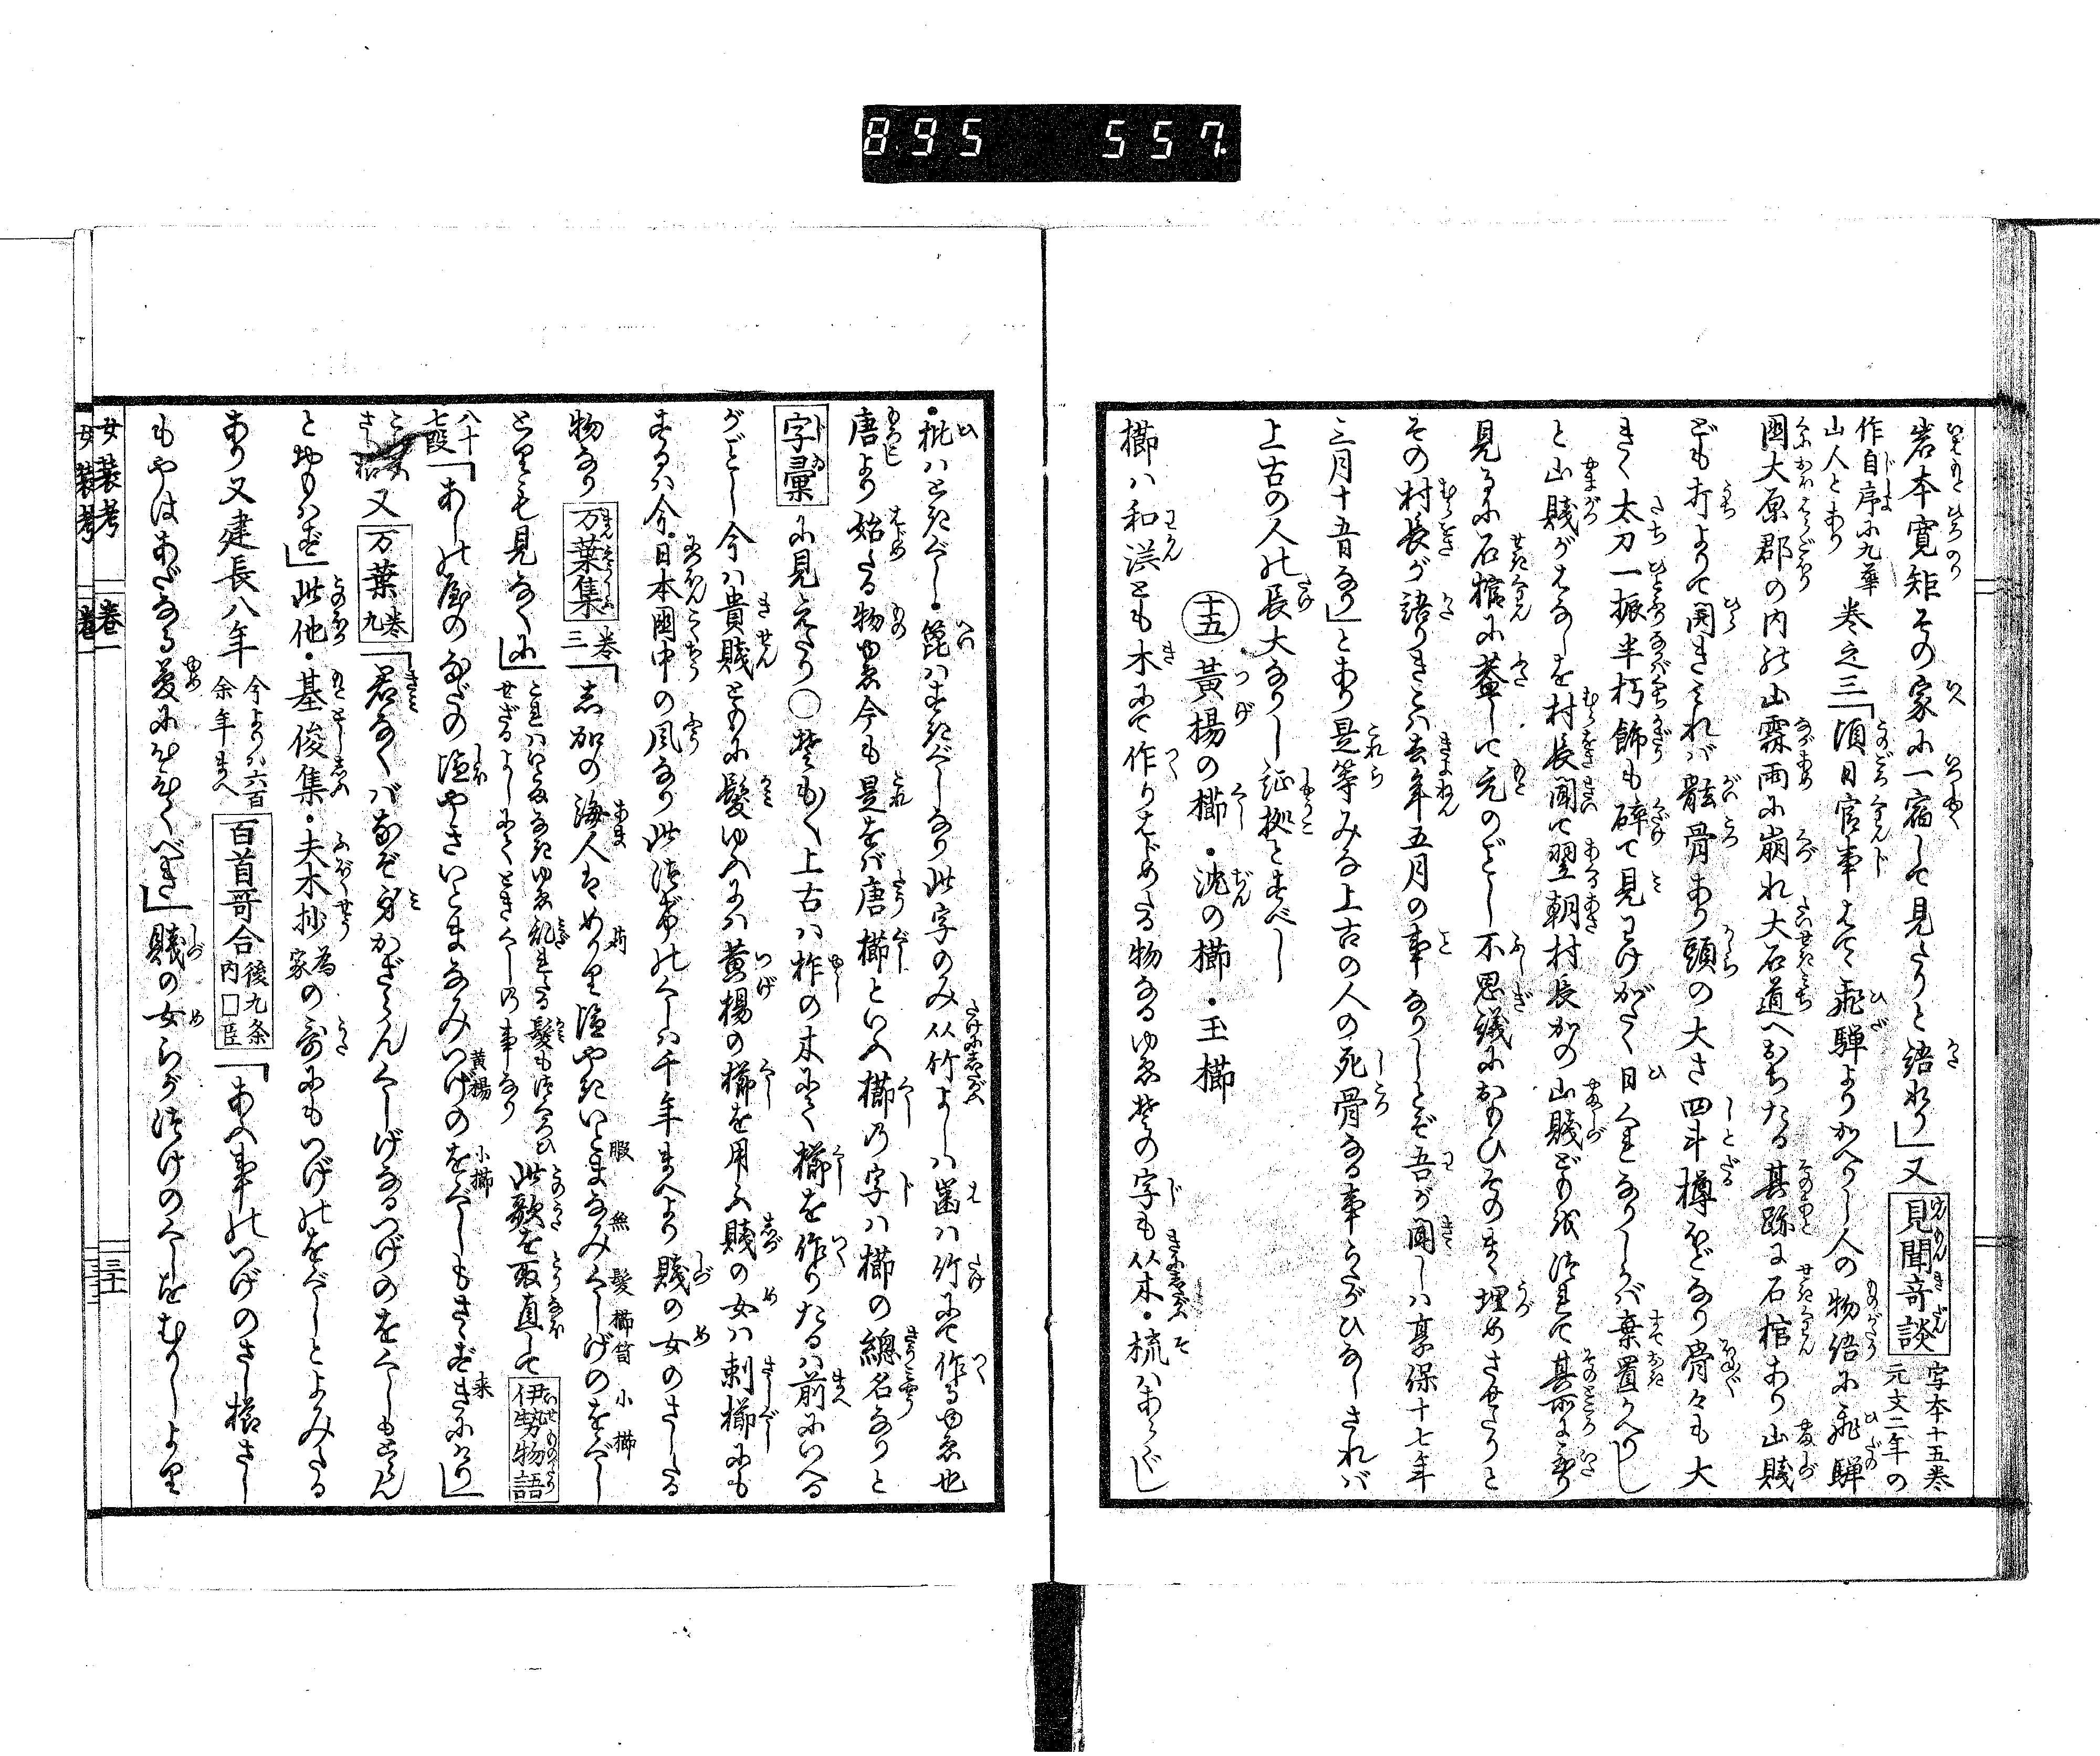 895 557
岩本寛矩その家に一宿して見たりと語れり」又見聞奇談写本十五巻元文二年の
作自序に九華山人とあり巻之三「頃日官事はてゝ飛騨よりかへりし人の物語に飛騨
国大原郡の内の山霖雨に崩れ大石道へおちたる其跡に石棺あり山賎
ども打よりて開きみれば骸骨あり頭の大さ四斗樽ほどなり骨々も大
きく太刀一振半朽飾も砕て見わけがたく日くれなりしかば棄置かへりし
と山賎がはなしを村長聞て翌朝村長かの山賎どもを従て其所に至り
見るに石棺に蓋して元のごとし不思議におもひそのまゝ埋めさせたりと
その村長が語りきとハ去年五月の事なりしとぞ吾が聞しハ享保十七年
三月十五日なり」とあり是等みな上古の人の死骨なる事うたがひなしされバ
上古の人の長大なりし証拠とすべし
十五 黄楊の櫛・沈の櫛・玉櫛
櫛ハ和漢とも木にて作りはじめたる物なるゆゑ櫛の字も从木・梳ハあらぐし
・枇ハときぐし・篦ハすきぐしなり此字のみ从竹よしハ歯ハ竹にて作るゆゑ也
唐より始たる物ゆゑ今も是をバ唐櫛といふ櫛の字ハ櫛の総名なりと
字彙に見えたり〇櫛も上古ハ柞の木にて櫛を作りたるハ前にいへる
がごとし今ハ貴賎ともに髪ゆふにハ黄楊の櫛を用ふ賎の女ハ刺櫛にも
するハ今日本国中の風なり此つげのくしハ千年まへより賎の女のさしたる
物なり万葉集巻三「志加の海人ハめかり塩やきいとまなみくしげのをぐし
とりも見なくに」此歌を取直して伊勢物語
八十七段「あしの屋のなだの塩やきいとまなみつげのをぐしもさゝずきにけり」
又万葉巻九「君なくバなぞ身かざらんくしげなるつげのをぐしもとらん
とおもハず」此他・基俊集・夫木抄為家の哥にもつげのをぐしとよみたる
あり又建長八年今よりハ六百余年まへ百首哥合後九条内□臣「あハ事のつげのさし櫛さし
もやはあだなる夢にむくべき」賎の女らがつげのくしをむかしより
女装考 巻一 三十五
女装考